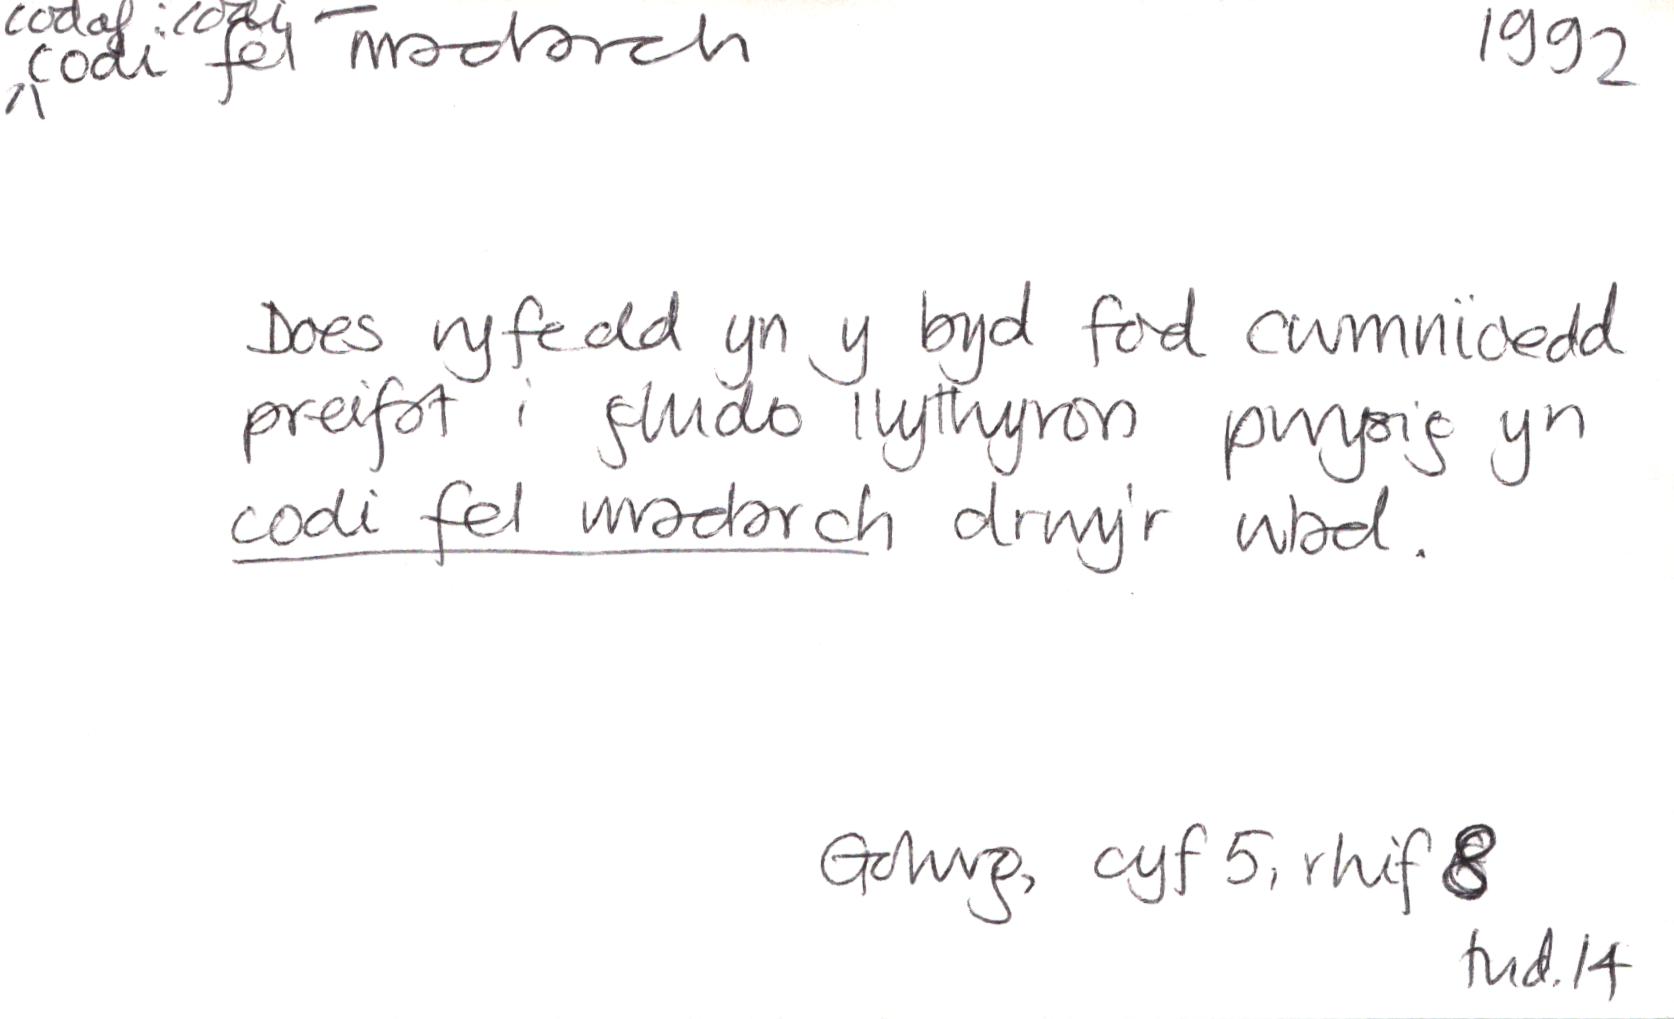 codaf : codi –
codi fel madarch 1992
Does ryfedd yn y byd fod cwmnïoedd
preifat i gludo llythyron pwysig yn
codi fel madarch drwy'r wlad.
Golwg, cyf 5, rhif 8
tud. 14